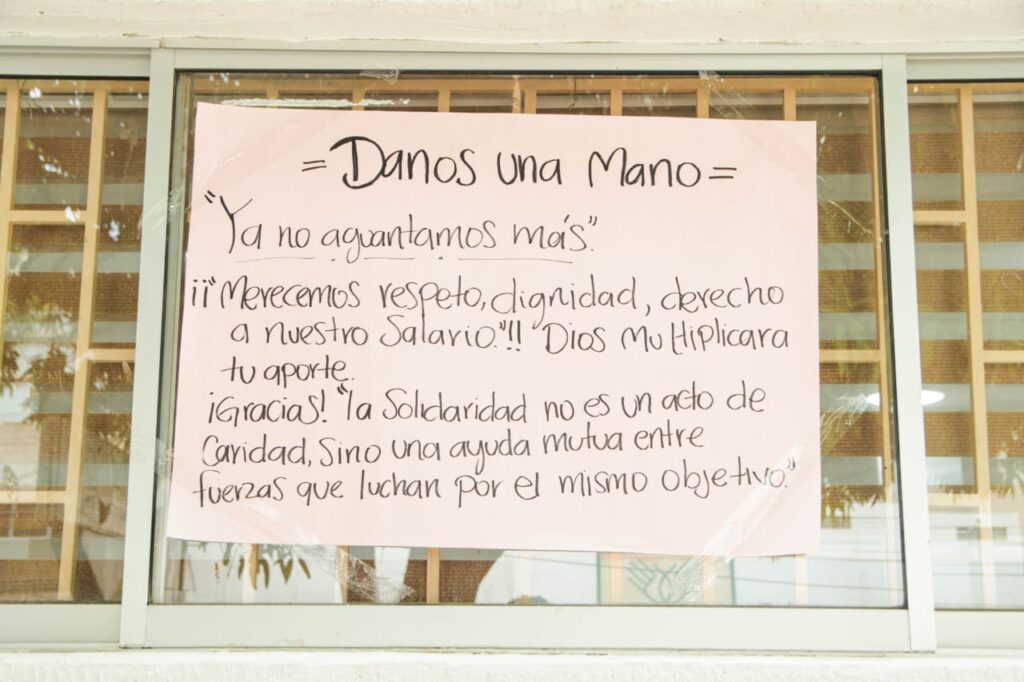 = Danos una Mano =
"Ya no aguantamos más".
¡¡"Merecemos respeto, dignidad, derecho
a nuestro Salario."!! "Dios Multiplicara
tu aporte.
¡Gracias! "la Solidaridad no es un acto de
Caridad, Sino una ayuda mutua entre
fuerzas que luchan por el mismo objetivo."